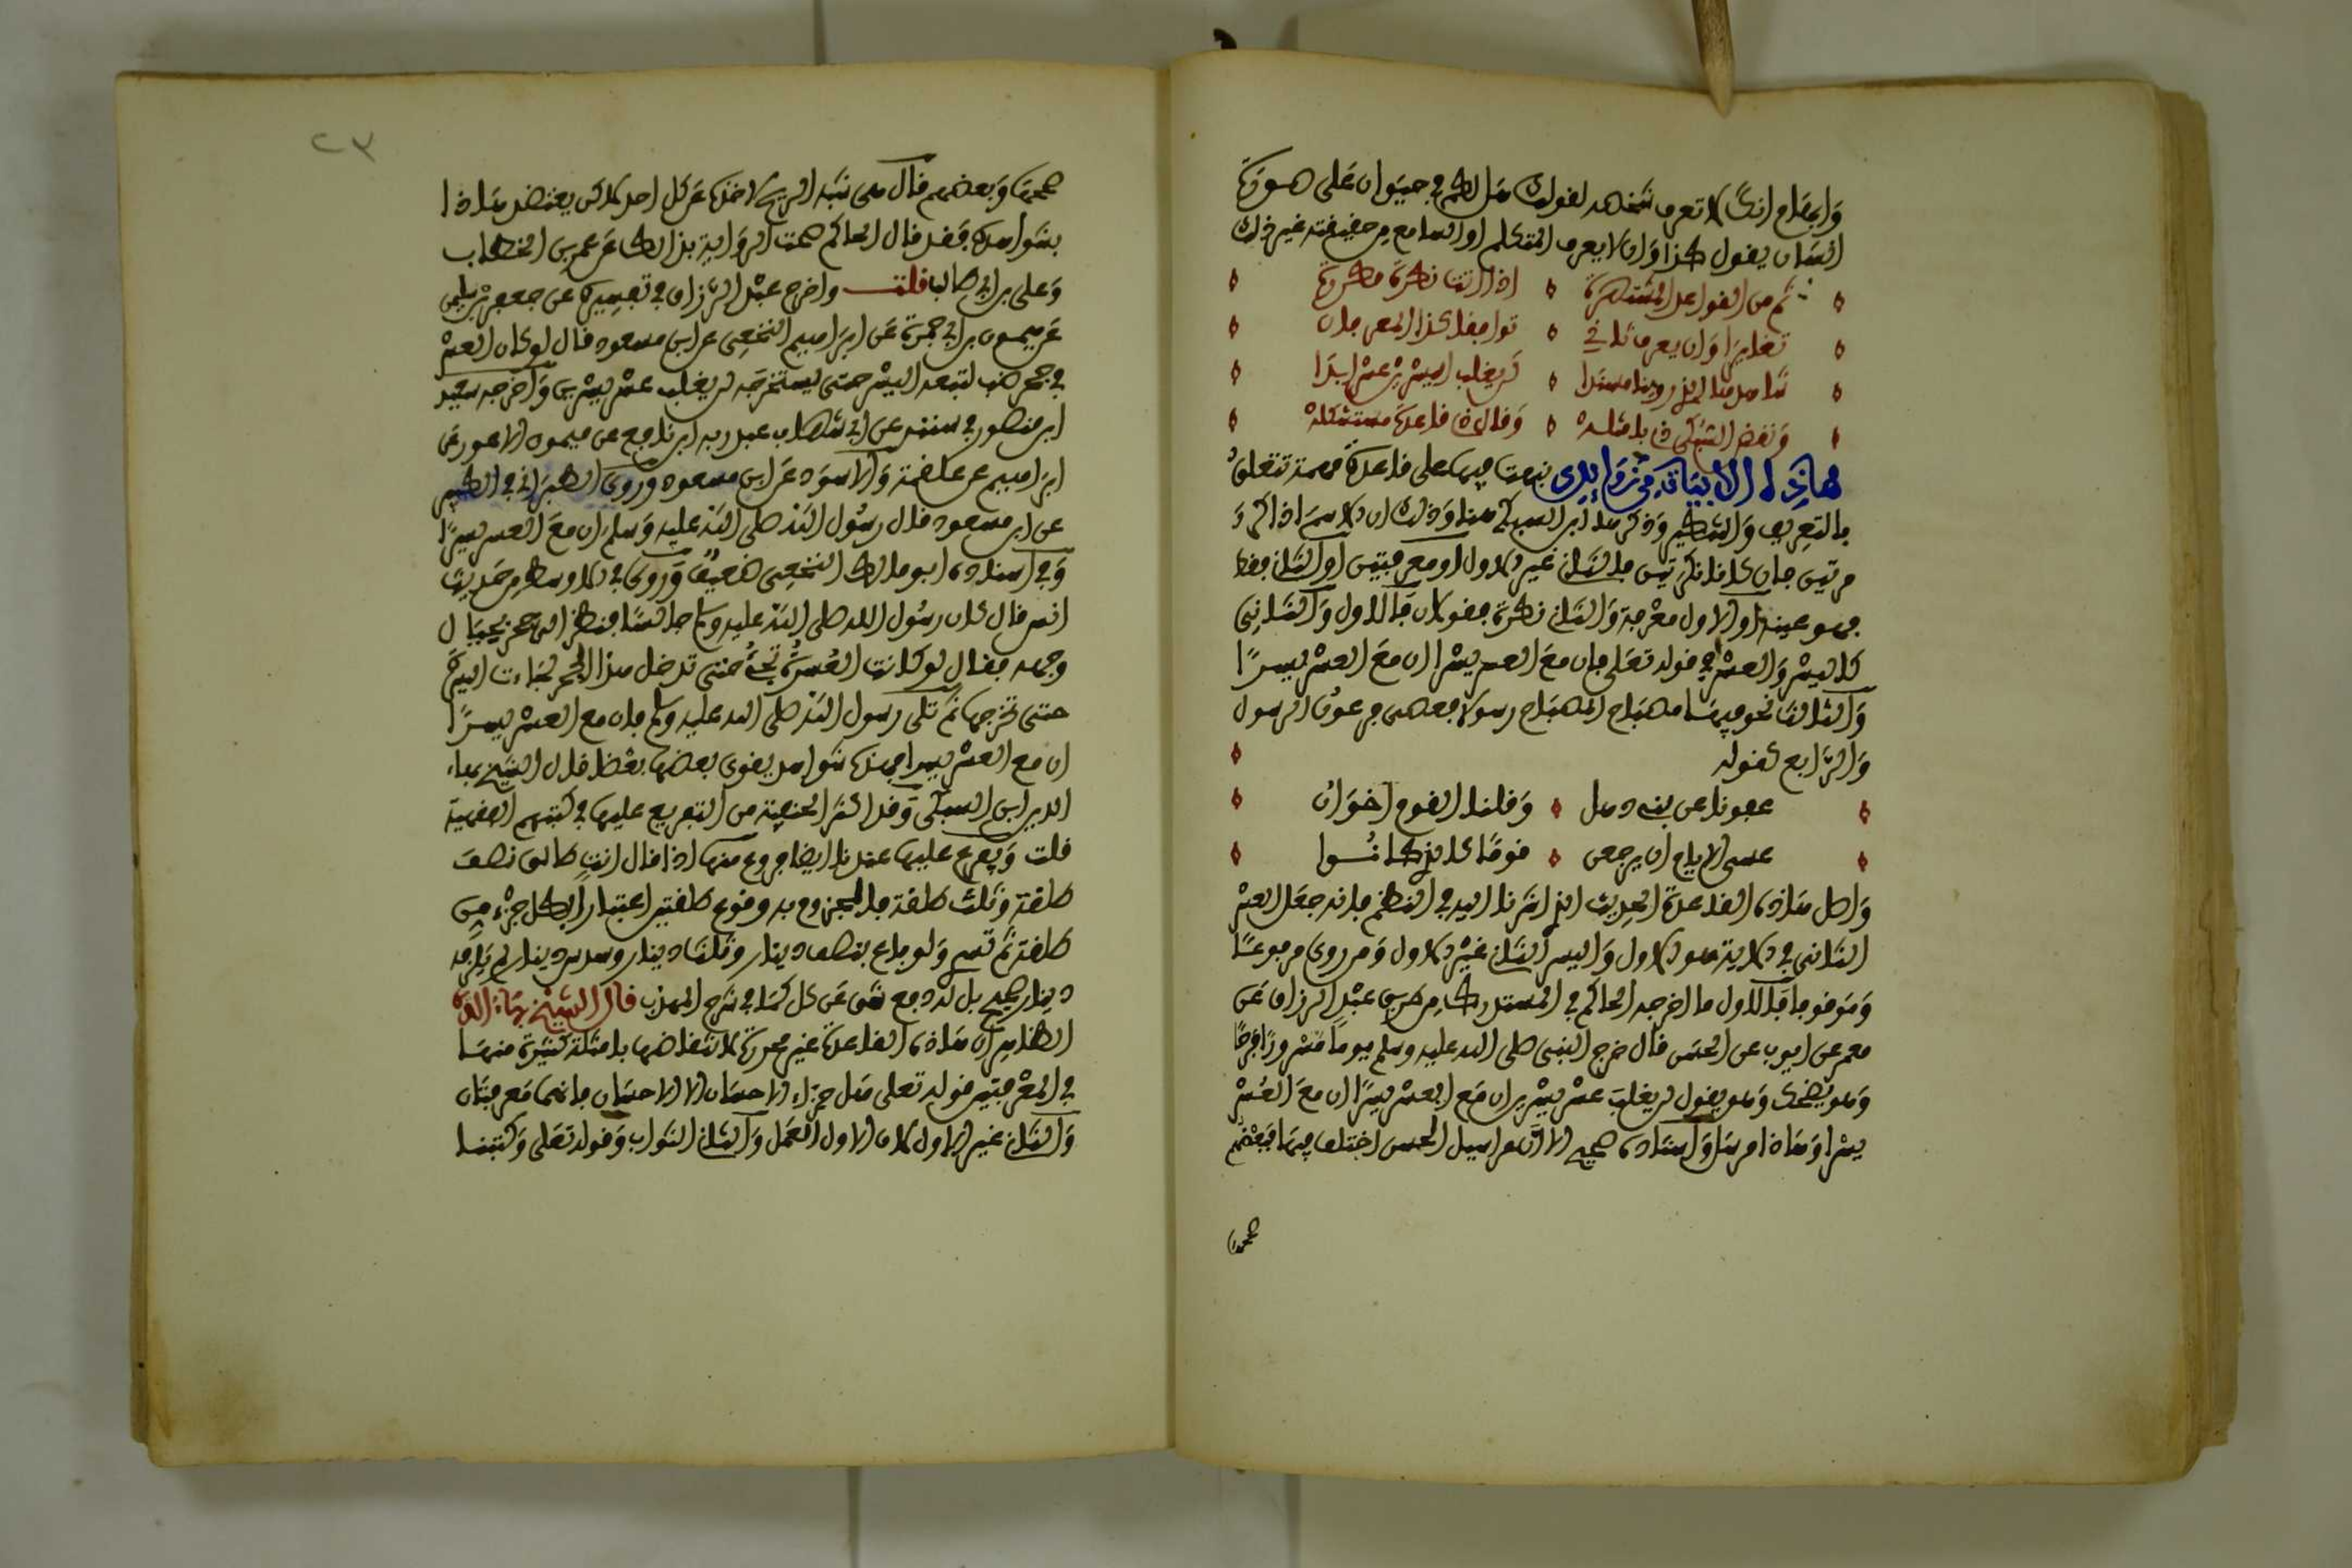 وإيضاح انك لا تعرف شخصه لقولك هل لكم في حيوان على صورة
انسان يقول كذا وان لا يعرف المتكلم او السامع من حقيقته غير ذلك
ثم من القواعد المشتهرة ٥ اذا اتت نكرة مكررة
تغايرا وان يعرف ثاني ٥ توافقا كذا المعرفان
شاهدها الذي روينا مسندا ٥ لن يغلب اليسرين عسر ابدا
ونقض السبكي ذي بامثلة ٥ وقال ذي قاعدة مستشكلة
هاذه الابيات من زوايدي نبهت فيها على قاعدة مهمة تتعلق
بالتعريف والتنكير وذكرها ابن السبكي هنا وذلك ان الاسم اذا كرر
مرتين فان كانا نكرتين فالثاني غير الاول او معرفتين او الثاني فقط
فهو عينه او الاول معرفة والثاني نكرة فقولان فالاول والثاني
كاليسر والعسر في قوله تعلى فان مع العسر يسرا ان مع العسر يسرا
والثالث نحو فيها مصباح المصباح رسولا فعصى فرعون الرسول
والرابع كقوله
عفونا عن بني ذهل ٥ وقلنا القوم اخوان
عسى الايام ان يرجعن ٥ قوما كالذي كانوا
واصل هاذه القاعدة الحديث الذي اشرنا اليه في النظم فانه جعل العسر
الثاني في الاية هو الاول واليسر الثاني غير الاول وقد روي مرفوعا
وموقوفا فالاول ما اخرجه الحاكم في المستدرك من طريق عبد الرزاق عن
معمر عن ايوب عن الحسن قال خرج النبي صلى الله عليه وسلم يوما مسرورا فرحا
وهو يضحك وهو يقول لن يغلب عسر يسرين ان مع العسر يسرا ان مع العسر
يسرا وهاذا مرسل واسناده صحيح الا ان مراسيل الحسن اختلف فيها فبعضهم
صححها
٢٣
صححها وبعضهم قال هي شبه الريح لاخذه عن كل احد لاكن يعتضد هاذا
بشواهده فقد قال الحاكم صحت الرواية بذالك عن عمر بن الخطاب
وعلي بن ابي طالب قلت واخرج عبد الرزاق في تفسيره عن جعفر بن سليمن
عن ميمون بن ابي حمزة عن ابراهيم النخعي عن ابن مسعود قال لو كان العسر
في جحر ضب لتبعه اليسر حتى يستخرجه لن يغلب عسر يسرين واخرجه سعيد
ابن منصور في سننه عن ابي شهاب عبد ربه ابن نافع عن ميمون الاعور عن
ابراهيم عن علقمة والاسود عن ابن مسعود وروى الطبراني في الكبير
عن ابن مسعود قال رسول الله صلى الله عليه وسلم ان مع العسر يسرا
وفي اسناده ابو مالك النخعي ضعيف وروى في الاوسط من حديث
انس قال كان رسول الله صلى الله عليه وسلم جالسا فنظر الى جحر بحيال
وجهه فقال لو كانت العسرة تجيء حتى تدخل هذا الجحر لجاءت اليسرة
حتى تخرجها ثم تلى رسول الله صلى الله عليه وسلم فان مع العسر يسرا
ان مع العسر يسرا فهذه شواهد يقوى بعضها بعضا قال الشيخ بهاء
الدين ابن السبكي وقد اكثر الحنفية من التفريع عليها في كتبهم الفقهية
قلت ويفرع عليها عندنا ايضا فروع منها اذا قال انت طالق نصف
طلقة وثلث طلقة فالمجزوم به وقوع طلقتين اعتبارا بكل جزء من
طلقة ثم تسري ولو باع بنصف دينار وثلث دينار وسدس دينار لم يلزمه
دينار صحيح بل له دفع شق عن كل كما في شرح المهذب قال الشيخ بهاء الدين
الظاهر ان هاذه القاعدة غير محررة لانتقاضها بامثلة كثيرة منها
في المعرفتين قوله تعلى هل جزاء الاحسان الا الاحسان فانهما معرفتان
والثاني غير الاول لان الاول العمل والثاني الثواب وقوله تعلى وكتبنا